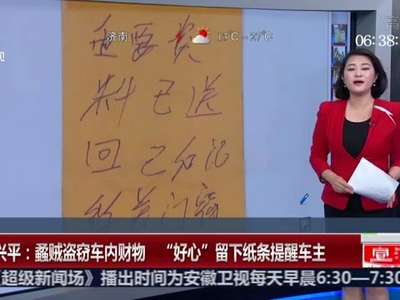 视
济南 13℃~27℃
06:38
重要资
料已送
回 已分记
兴平：蠡贼盗窃车内财物 “好心”留下纸条提醒车主
宣
《超级新闻场》播出时间为安徽卫视每天早晨6:30—7:30